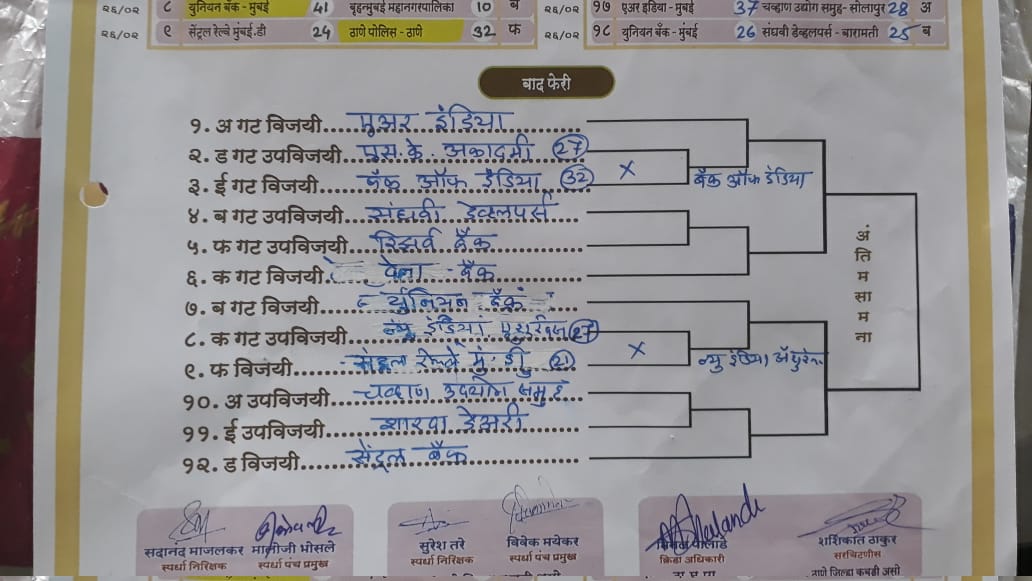 २६/०२ ८ युनियन बँक - मुंबई 41 बृहन्मुंबई महानगरपालिका 10 ब २६/०२ १७ एअर इंडिया - मुंबई 37 चव्हाण उद्योग समुह - सोलापुर 28 अ
२६/०२ ९ सेंट्रल रेल्वे मुंबई.डी 24 ठाणे पोलिस - ठाणे 32 फ २६/०२ १८ युनियन बँक - मुंबई 26 संघवी डेव्हलपर्स - बारामती 25 ब
बाद फेरी
१. अ गट विजयी.... एअर इंडिया
२. ड गट उपविजयी... एस.के. अकादमी 27
३. ई गट विजयी.... बँक ऑफ इंडिया 32 × बँक ऑफ इंडिया
४. ब गट उपविजयी... संघवी डेव्हलपर्स
५. फ गट उपविजयी... रिझर्व बँक
६. क गट विजयी. देना - बँक
७. ब गट विजयी.... युनियन बँक
८. क गट उपविजयी... न्यु इंडिया 27
९. फ विजयी.... सेंट्रल रेल्वे मुं. डी 21 × न्यु इंडिया
१०. अ उपविजयी.... चव्हाण उदयोग समुह
११. ई उपविजयी.... शारदा डेअरी
१२. ड विजयी.... सेंट्रल बँक
अंतिम सामना
सदानंद माजलकर मालोजी भोसले सुरेश तरे विवेक मयेकर शशिकांत ठाकुर
स्पर्धा निरिक्षक स्पर्धा पंच प्रमुख स्पर्धा निरिक्षक स्पर्धा पंच प्रमुख क्रिडा अधिकारी सरचिटणीस
ठा म पा ठाणे जिल्हा कबड्डी असो